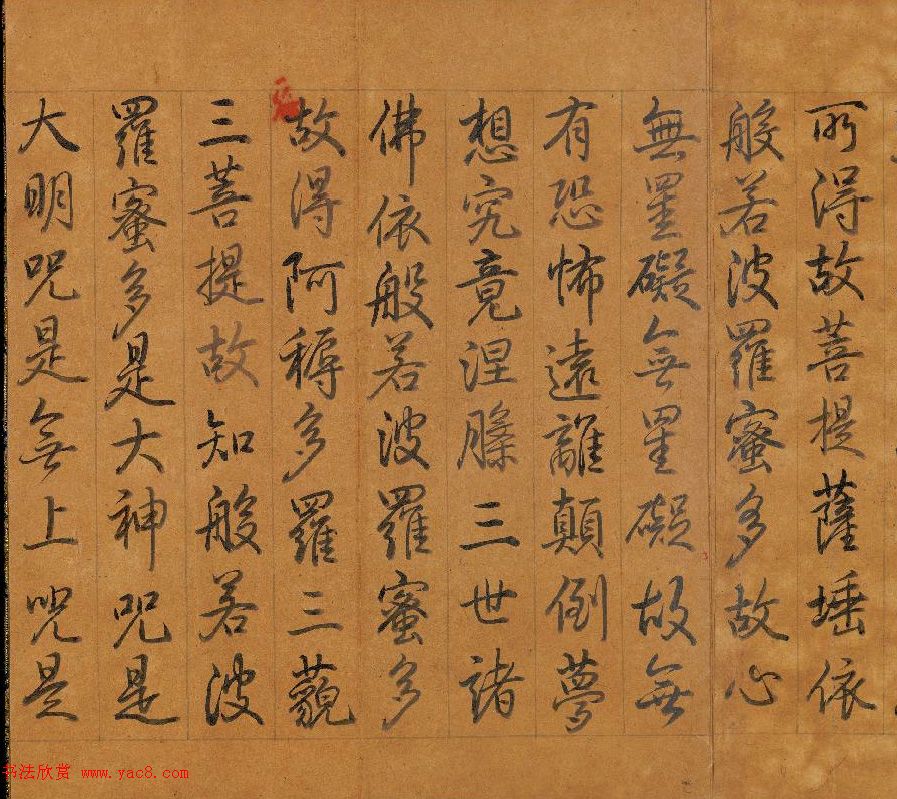 所得故菩提薩埵依
般若波羅蜜多故心
無罣礙無罣礙故無
有恐怖遠離顛倒夢
想究竟涅槃三世諸
佛依般若波羅蜜多
故得阿耨多羅三藐
三菩提故知般若波
羅蜜多是大神咒是
大明咒是無上咒是
书法欣赏 www.yac8.com